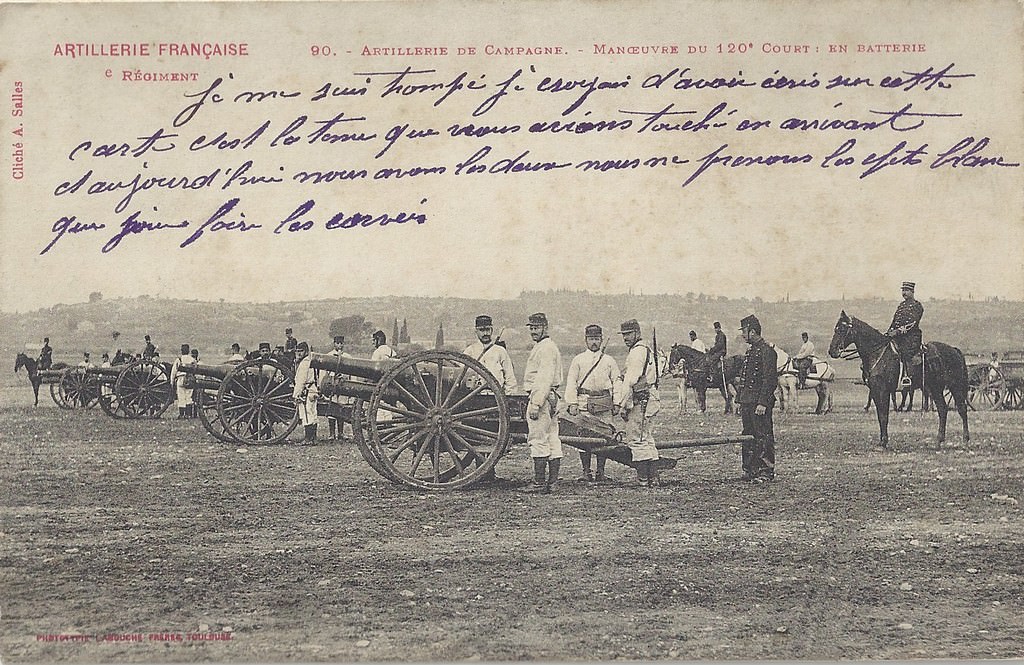 ARTILLERIE FRANÇAISE
e RÉGIMENT
90. - ARTILLERIE DE CAMPAGNE. - MANŒUVRE DU 120e COURT : EN BATTERIE
Cliché A. Salles
je me suis trompé je croyai d'avoir écris sur cette
carte c'est la tenue que nous avions touché en arrivant
et aujourd'hui nous avons les deux nous ne prenons les efets blanc
que pour faire les corveés
PHOTOTYPIE LABOUCHE FRÈRES, TOULOUSE.